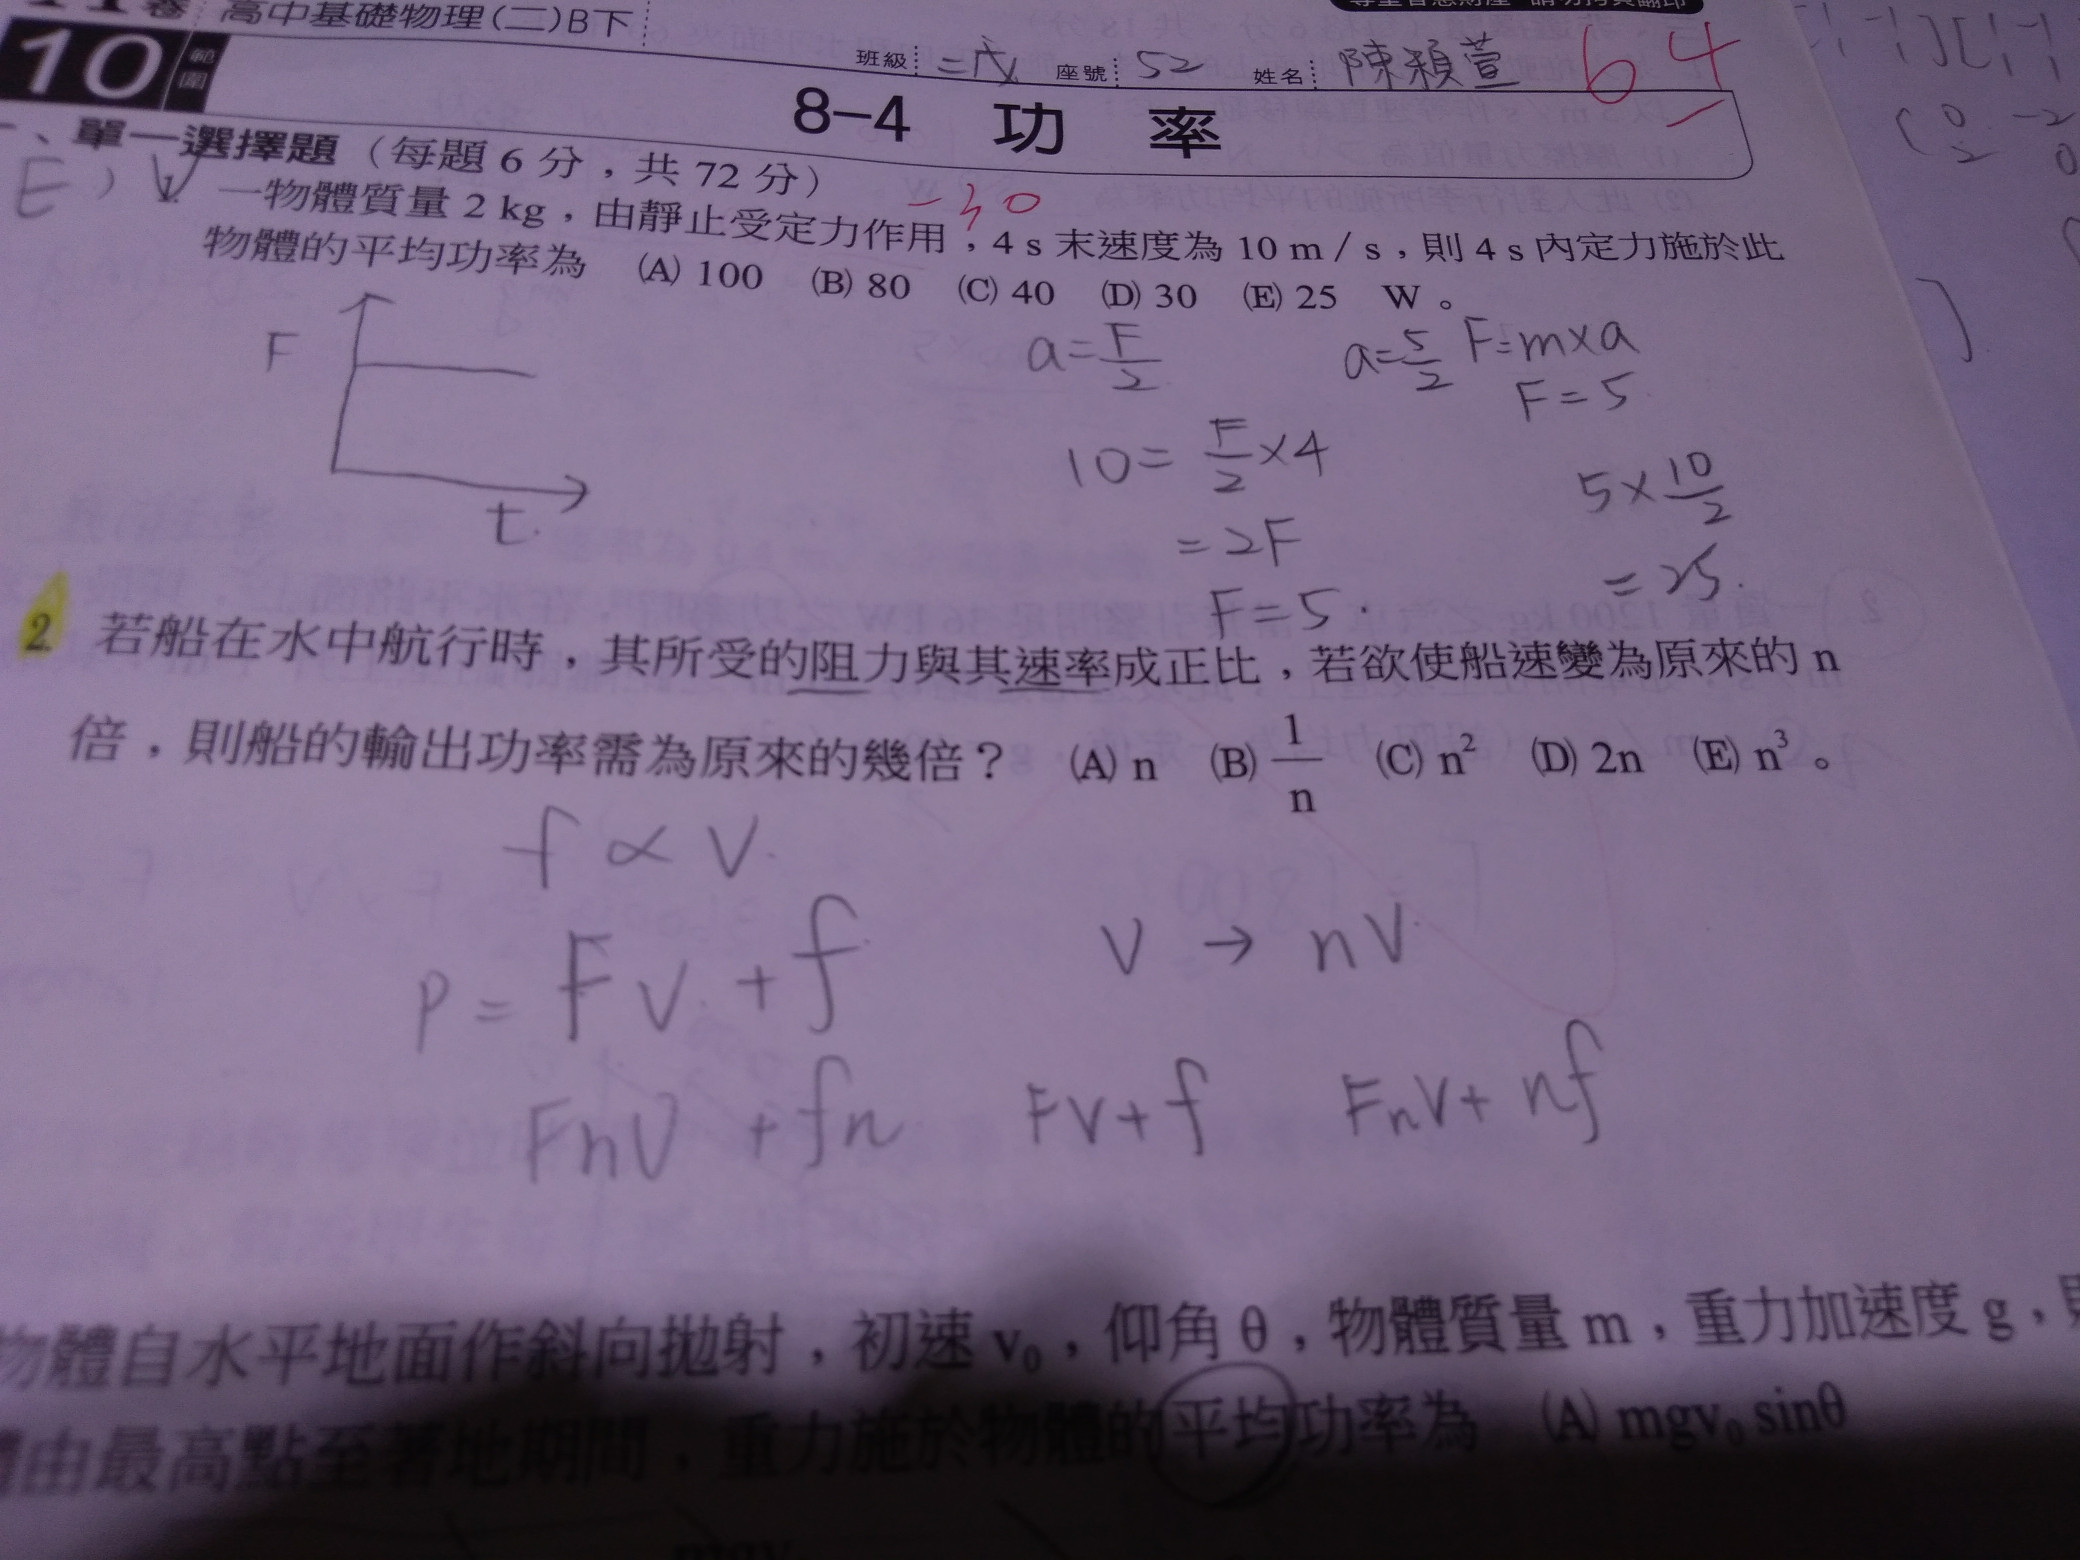 卷 高中基礎物理(二)B下
10 範圍
班級 座號 52 姓名 陳穎萱 64
8-4 功率
一、單一選擇題（每題 6 分，共 72 分）
-30
E
1. 一物體質量 2 kg，由靜止受定力作用，4 s 末速度為 10 m / s，則 4 s 內定力施於此
物體的平均功率為 (A) 100 (B) 80 (C) 40 (D) 30 (E) 25 W。
F
t
a=F/2
10=F/2×4
=2F
F=5
a=5/2 F=m×a
F=5
5×10/2
=25
2. 若船在水中航行時，其所受的阻力與其速率成正比，若欲使船速變為原來的 n
倍，則船的輸出功率需為原來的幾倍？ (A) n (B) 1/n (C) n² (D) 2n (E) n³。
f ∝ V
P= FV + f
V → nV
FnV + fn FV+f FnV+nf
物體自水平地面作斜向拋射，初速 v₀，仰角 θ，物體質量 m，重力加速度 g，
體由最高點至著地期間，重力施於物體的平均功率為 (A) mgv₀ sinθ